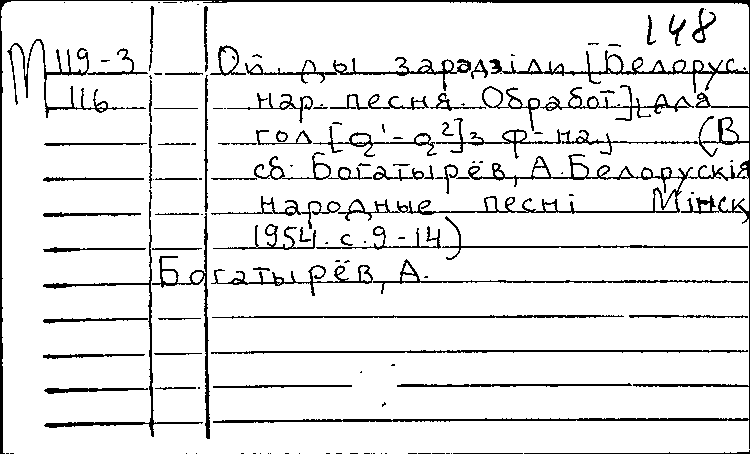 148
М 119-3 Ой ды зарадзіли [Белорус.
116 нар. песня. Обработ.] для
гол [a¹-a²] з ф-на, (В
сб: Богатырёв, А. Белорускія
народные песні Мінск,
1954. с. 9-14)
Богатырёв, А.